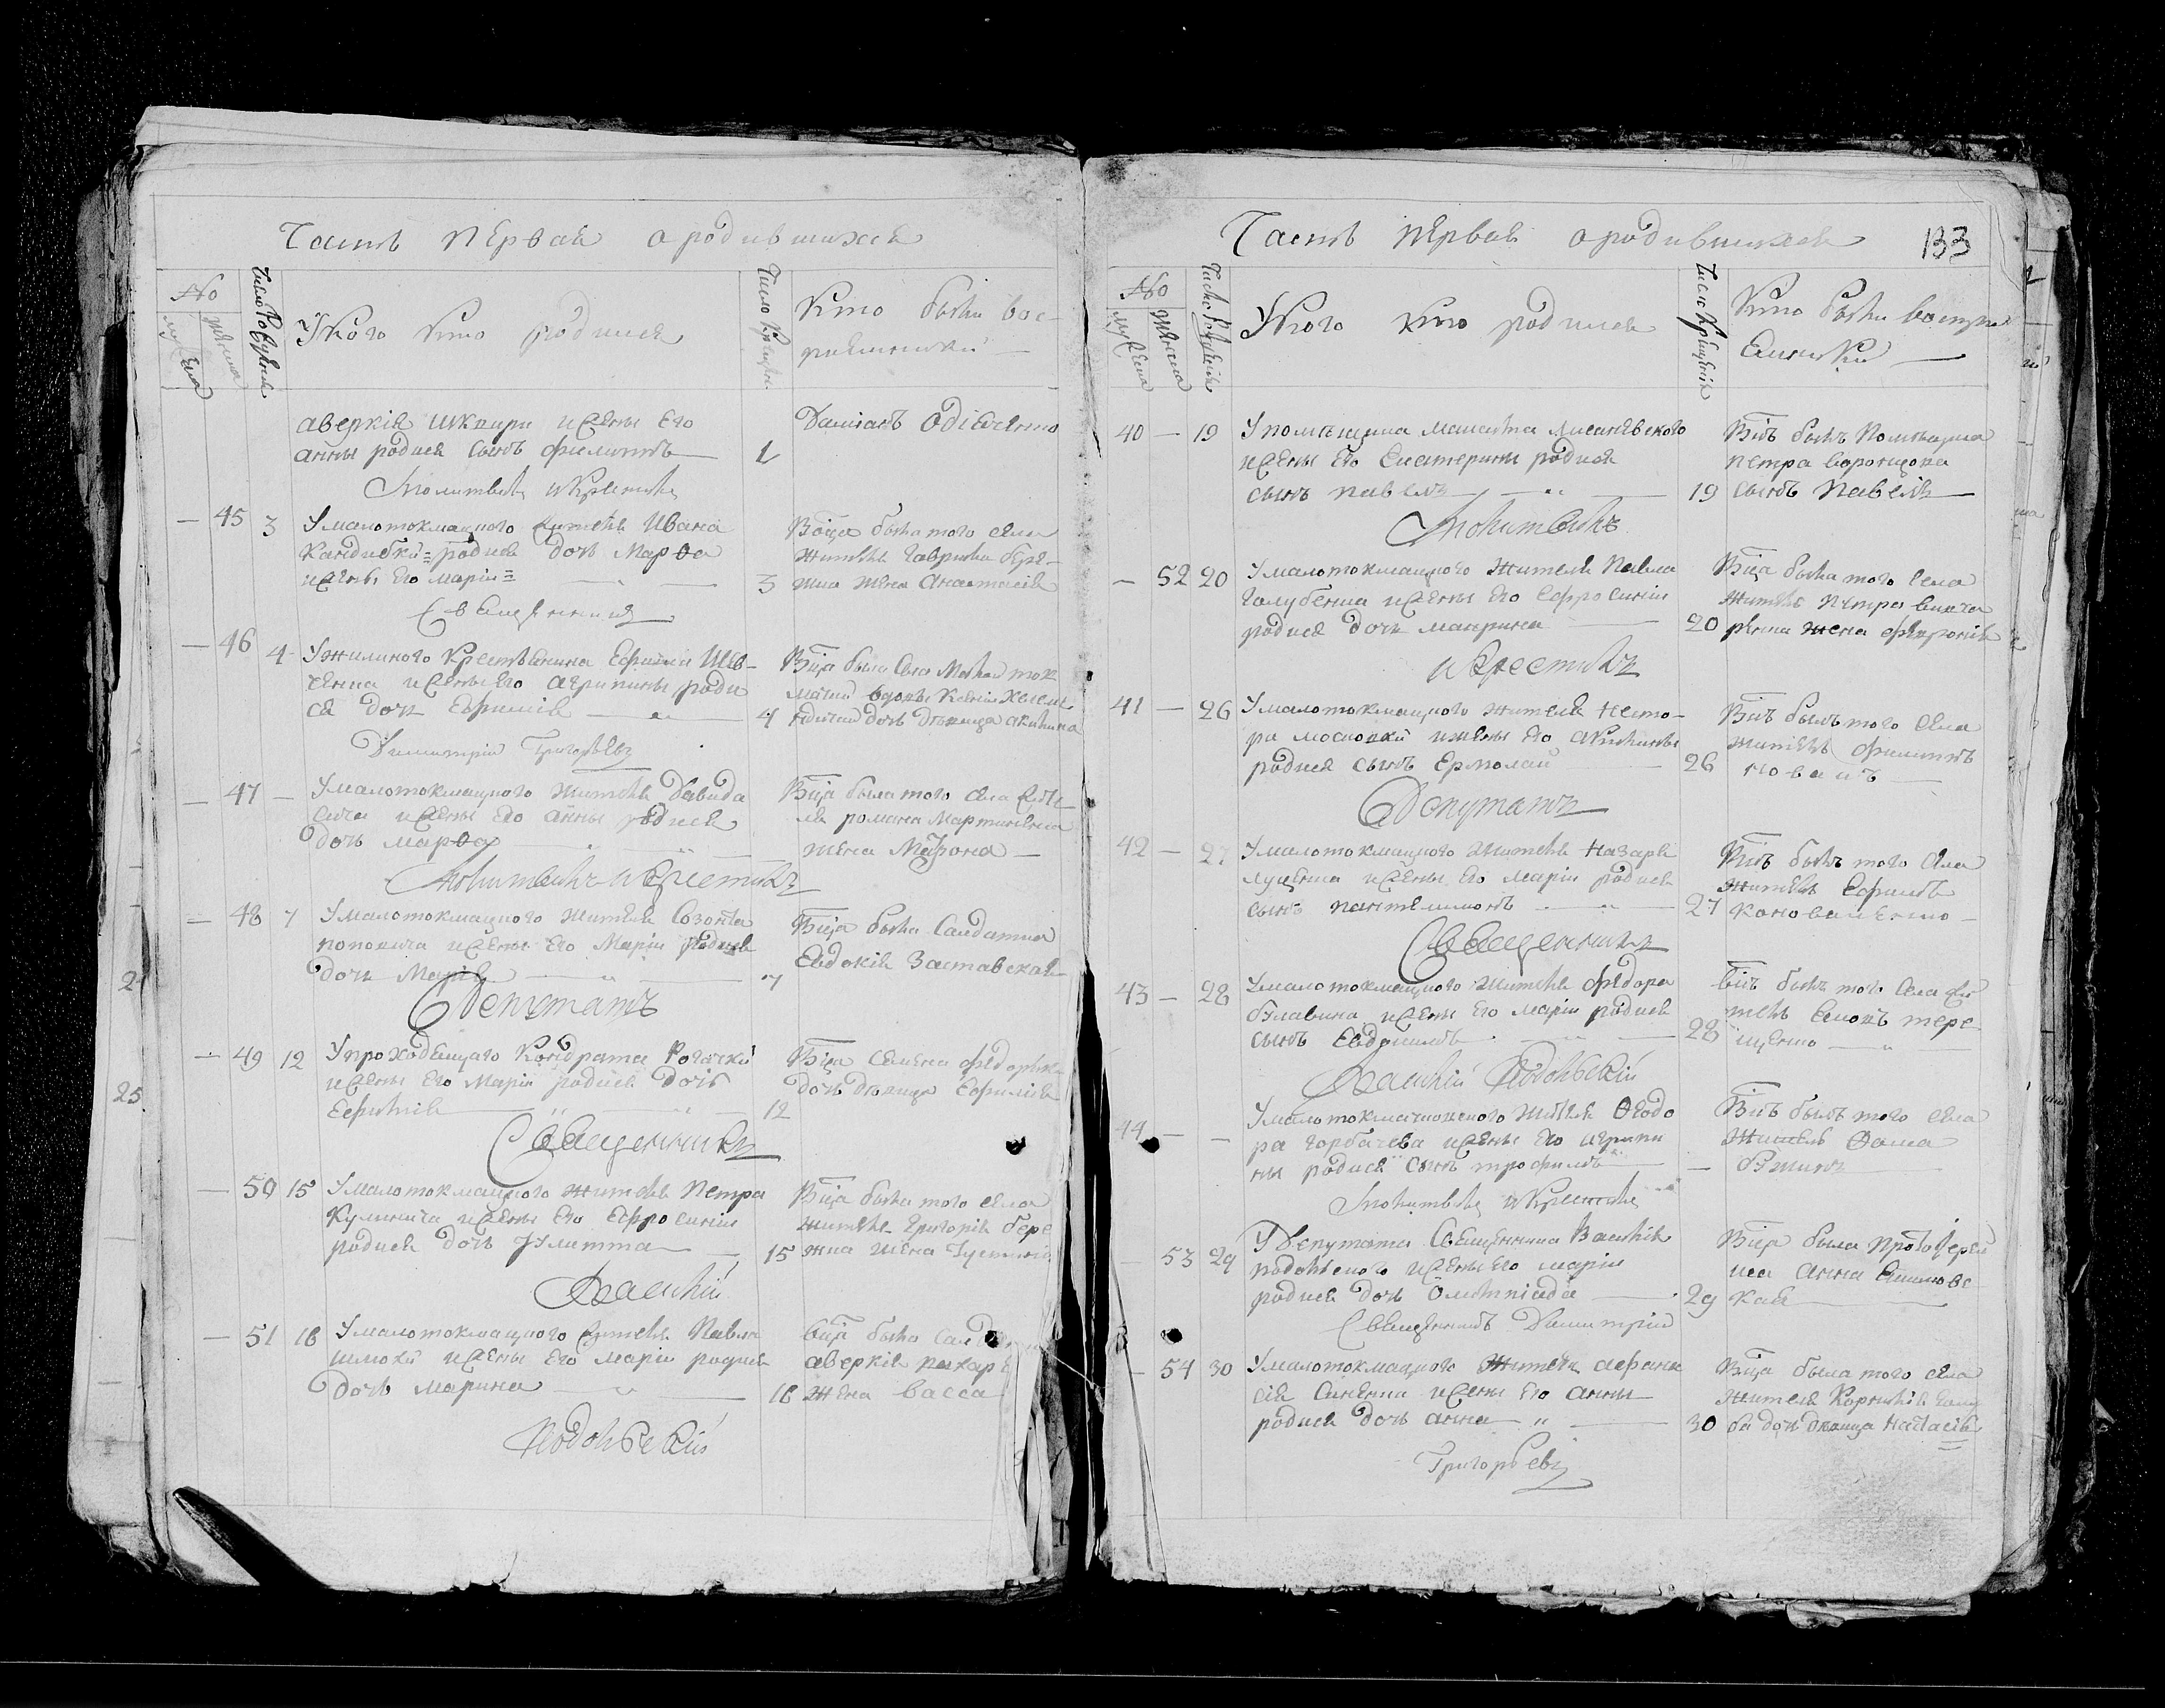 Часть первая о родившихся
№
мужеска
женска
Число Рождения
У кого кто родился
Число Крещения
Кто были вос-
приемники
аверкія шквири и жены Его
анны родися сынъ филиппъ
Даміанъ
Молитвовалъ и Крестилъ
45 3 У малотокмацкого жителя Ивана
Кандибки родися дочь Марѳа
и жены Его Маріи 3
Віца была того села
жителя Гаврила бере-
жна жена Анастасія
Священникъ
46 4 У жилного Крестьянина Ефима Шев-
ченка и жены Его агрипины роди
ся дочь Ефимія 4
Віца была села Малой ток
мачки вдовы Ксеніи
дочь девица акилина
Димитрій Григорьевъ
47 У малотокмацкого жителя Давида
и жены Его анны родися
дочь марѳа
Віца была того села жите
ля романа Мартиненка
жена Матрона
Молитвилъ и Крестилъ
48 7 У малотокмацкого жителя Созонта
поповича и жены Его Маріи родися
дочь Марія 7
Віца была Салдатка
Евдокія Заставская
Депутатъ
49 12 У проходящаго Кондрата Рогачки
и жены Его Маріи родися дочь
Ефимія 12
Віца Семена
дочь девица Ефимія
Священникъ
50 15 У малотокмацкого жителя Петра
Кулинича и жены Его Ефросиніи
родися дочь Улитта 15
Віца была того села
жителя Григорія бере
жна жена
Василій
51 18 У малотокмацкого жителя Павла
шлюхи и жены Его маріи родися
дочь марина 18
віца была
аверкія
жена васса
Подольскій
Часть первая о родившихся 133
№
мужеска
женска
Число Рожденія
У кого кто родился
Число Крещенія
Кто были воспри
емники
40 19 У помещика
и жены Его Екатерины родися
сынъ павелъ 19
Вікъ былъ Помещика
петра воронцова
сынъ Павелъ
Молитвилъ
52 20 У малотокмацкого жителя Павла
Голубенка и жены Его Ефросиніи
родися дочь макрина 20
Віца была того села
жителя петра
жена февронія
и Крестилъ
41 26 У малотокмацкого жителя несто-
ра московки и жены Его Акилины
родися сынъ Ермолай 26
Вікъ былъ того села
житель филиппъ
коваль
Депутатъ
42 27 У малотокмацкого жителя назарія
луценка и жены Его маріи родися
сынъ пантелимонъ 27
Вікъ былъ того села
житель Ефимъ
коноваленко
Священникъ
43 28 У малотокмацкого жителя федора
булавина и жены Его маріи родися
сынъ Евдокимъ 28
вікъ былъ того села жи
тель Симонъ тере
щенко
Василій Подольскій
44 У малотокмачанского жителя Ѳеодо
ра горбачева и жены Его агрипи
ны родися сынъ трофимъ
Вікъ былъ того села
житель Ѳома
бужинъ
Молитвовалъ и Крестилъ
53 29 У Депутата Священника Василія
подольского и жены Его маріи
родися дочь Олимпіада 29
Віца была Протоіерей
ша анна
кая
Священникъ Димитрій
54 30 У малотокмацкого жителя афана
сія Синенка и жены Его анны
родися дочь анна 30
Віца была того села
жителя Корнилія
ба дочь девица Настасія
Григорьевъ